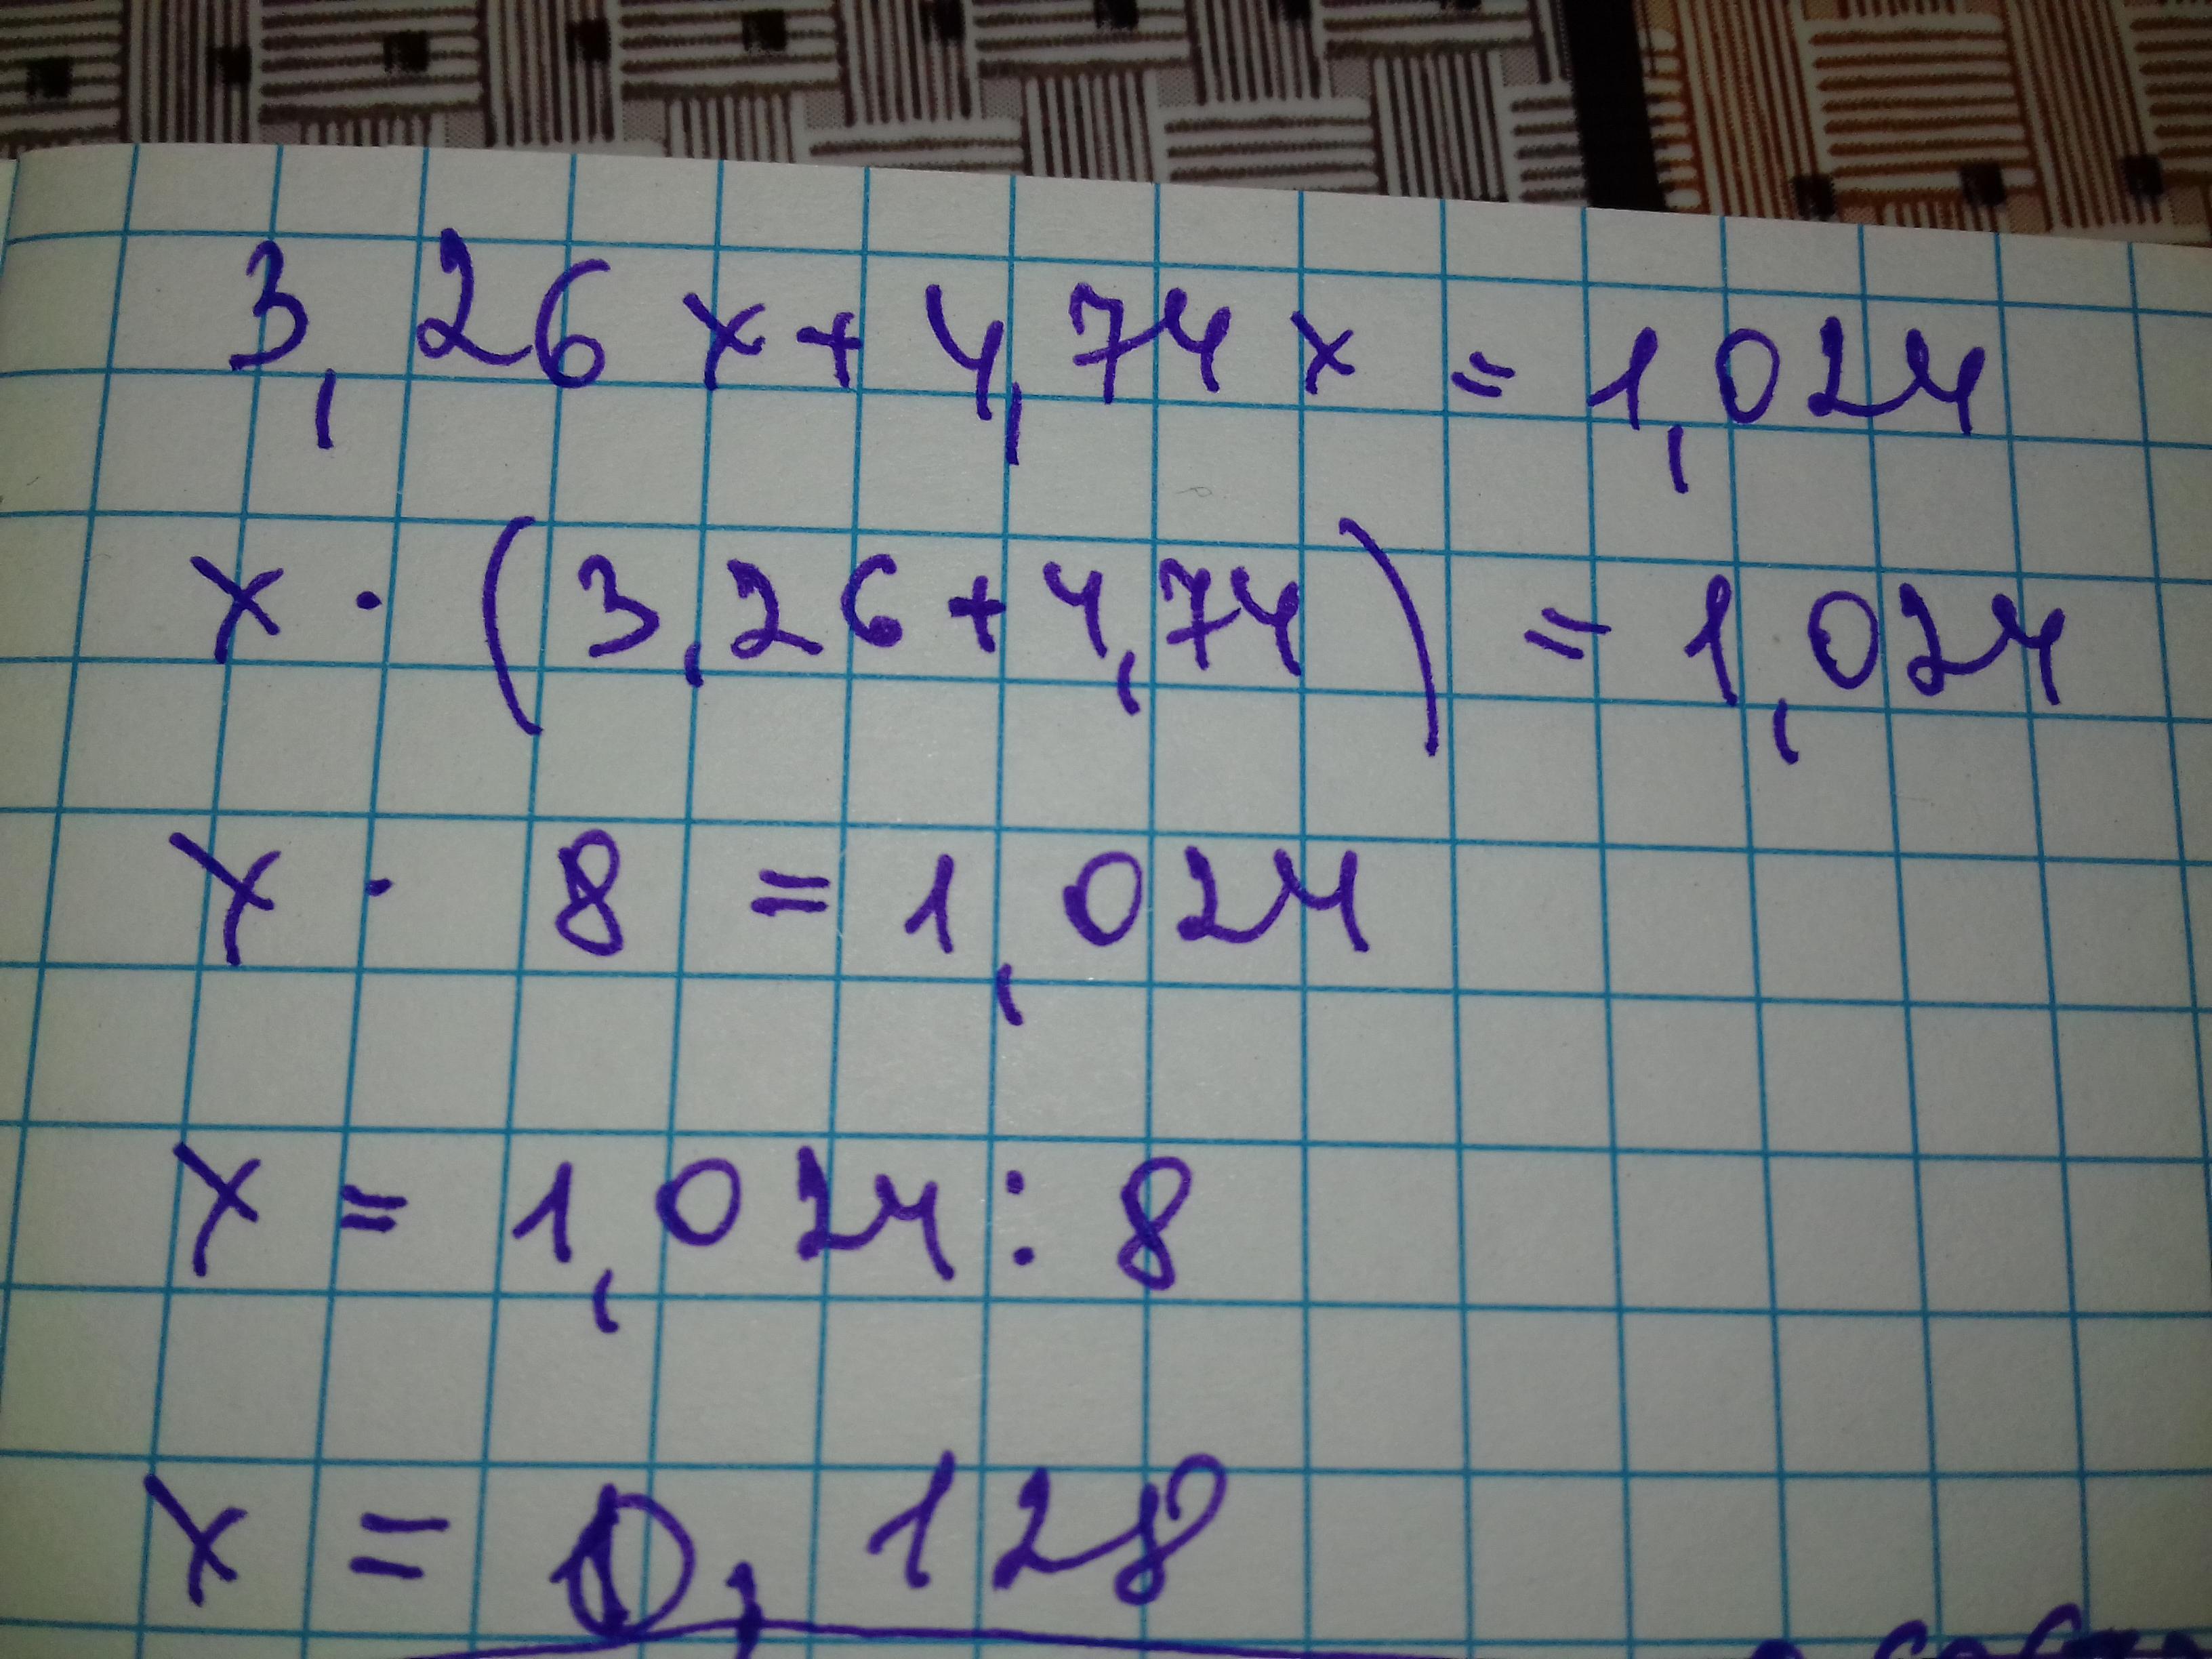 3,26x+4,74x=1,024
x·(3,26+4,74)=1,024
x·8=1,024
x=1,024:8
x=0,128